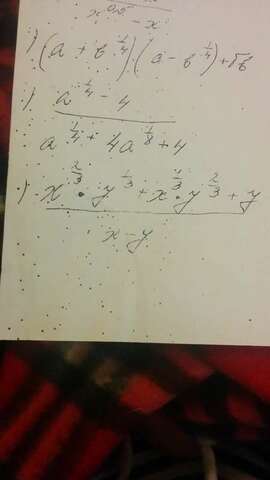 x^0,5 - x
) (a + b^1/4)·(a - b^1/4)+√b
) a^1/4 - 4
a^1/4 + 4a^1/8 + 4
) x^2/3 · y^1/3 + x^1/3 · y^2/3 + y
x - y